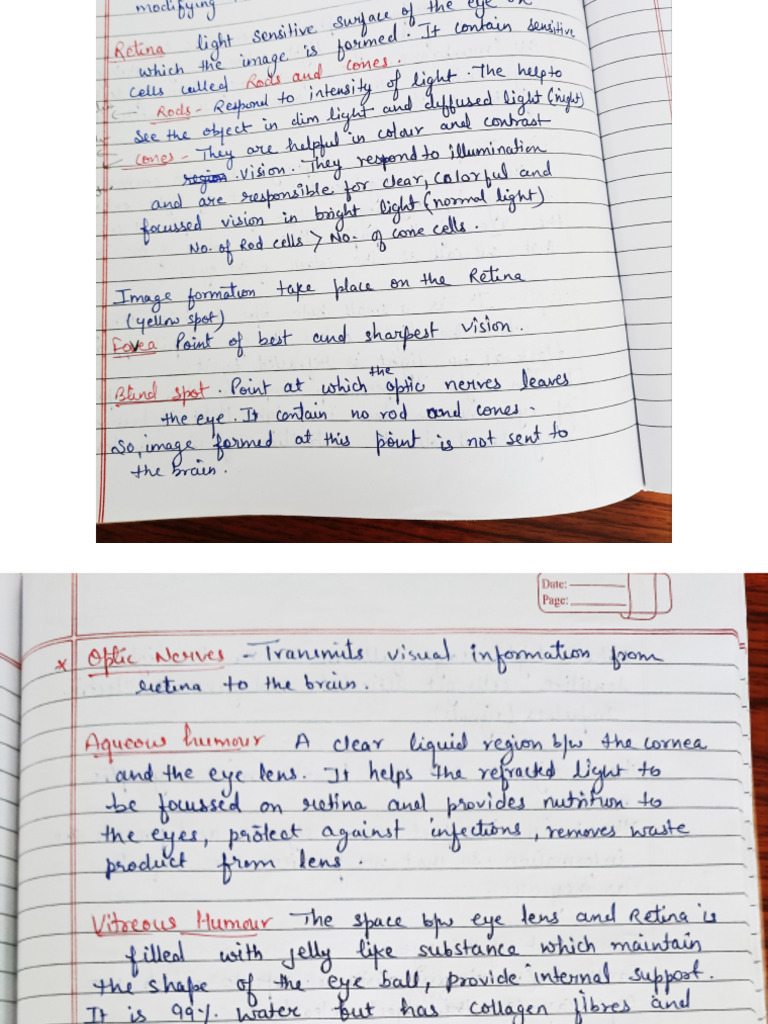 modifying
Retina light sensitive surface of the eye on
which the image is formed. It contain sensitive
cells called Rods and cones.
Rods - Respond to intensity of light. The help to
see the object in dim light and diffused light (night)
cones - They are helpful in colour and contrast
region vision. They respond to illumination
and are responsible for clear, colorful and
focussed vision in bright light (normal light)
No. of Rod cells > No. of cone cells.
Image formation take place on the Retina
(yellow spot)
Fovea Point of best and sharpest vision.
Blind spot. Point at which the optic nerves leaves
the eye. It contain no rod and cones.
So, image formed at this point is not sent to
the brain.
Date:
Page:
* Optic Nerves - Transmits visual information from
retina to the brain.
Aqueous humour A clear liquid region b/w the cornea
and the eye lens. It helps the refracted light to
be focussed on retina and provides nutrition to
the eyes, protect against infections, removes waste
product from lens.
Vitreous Humour The space b/w eye lens and Retina is
filled with jelly like substance which maintain
the shape of the eye ball, provide internal support.
It is 99% water but has collagen fibres and